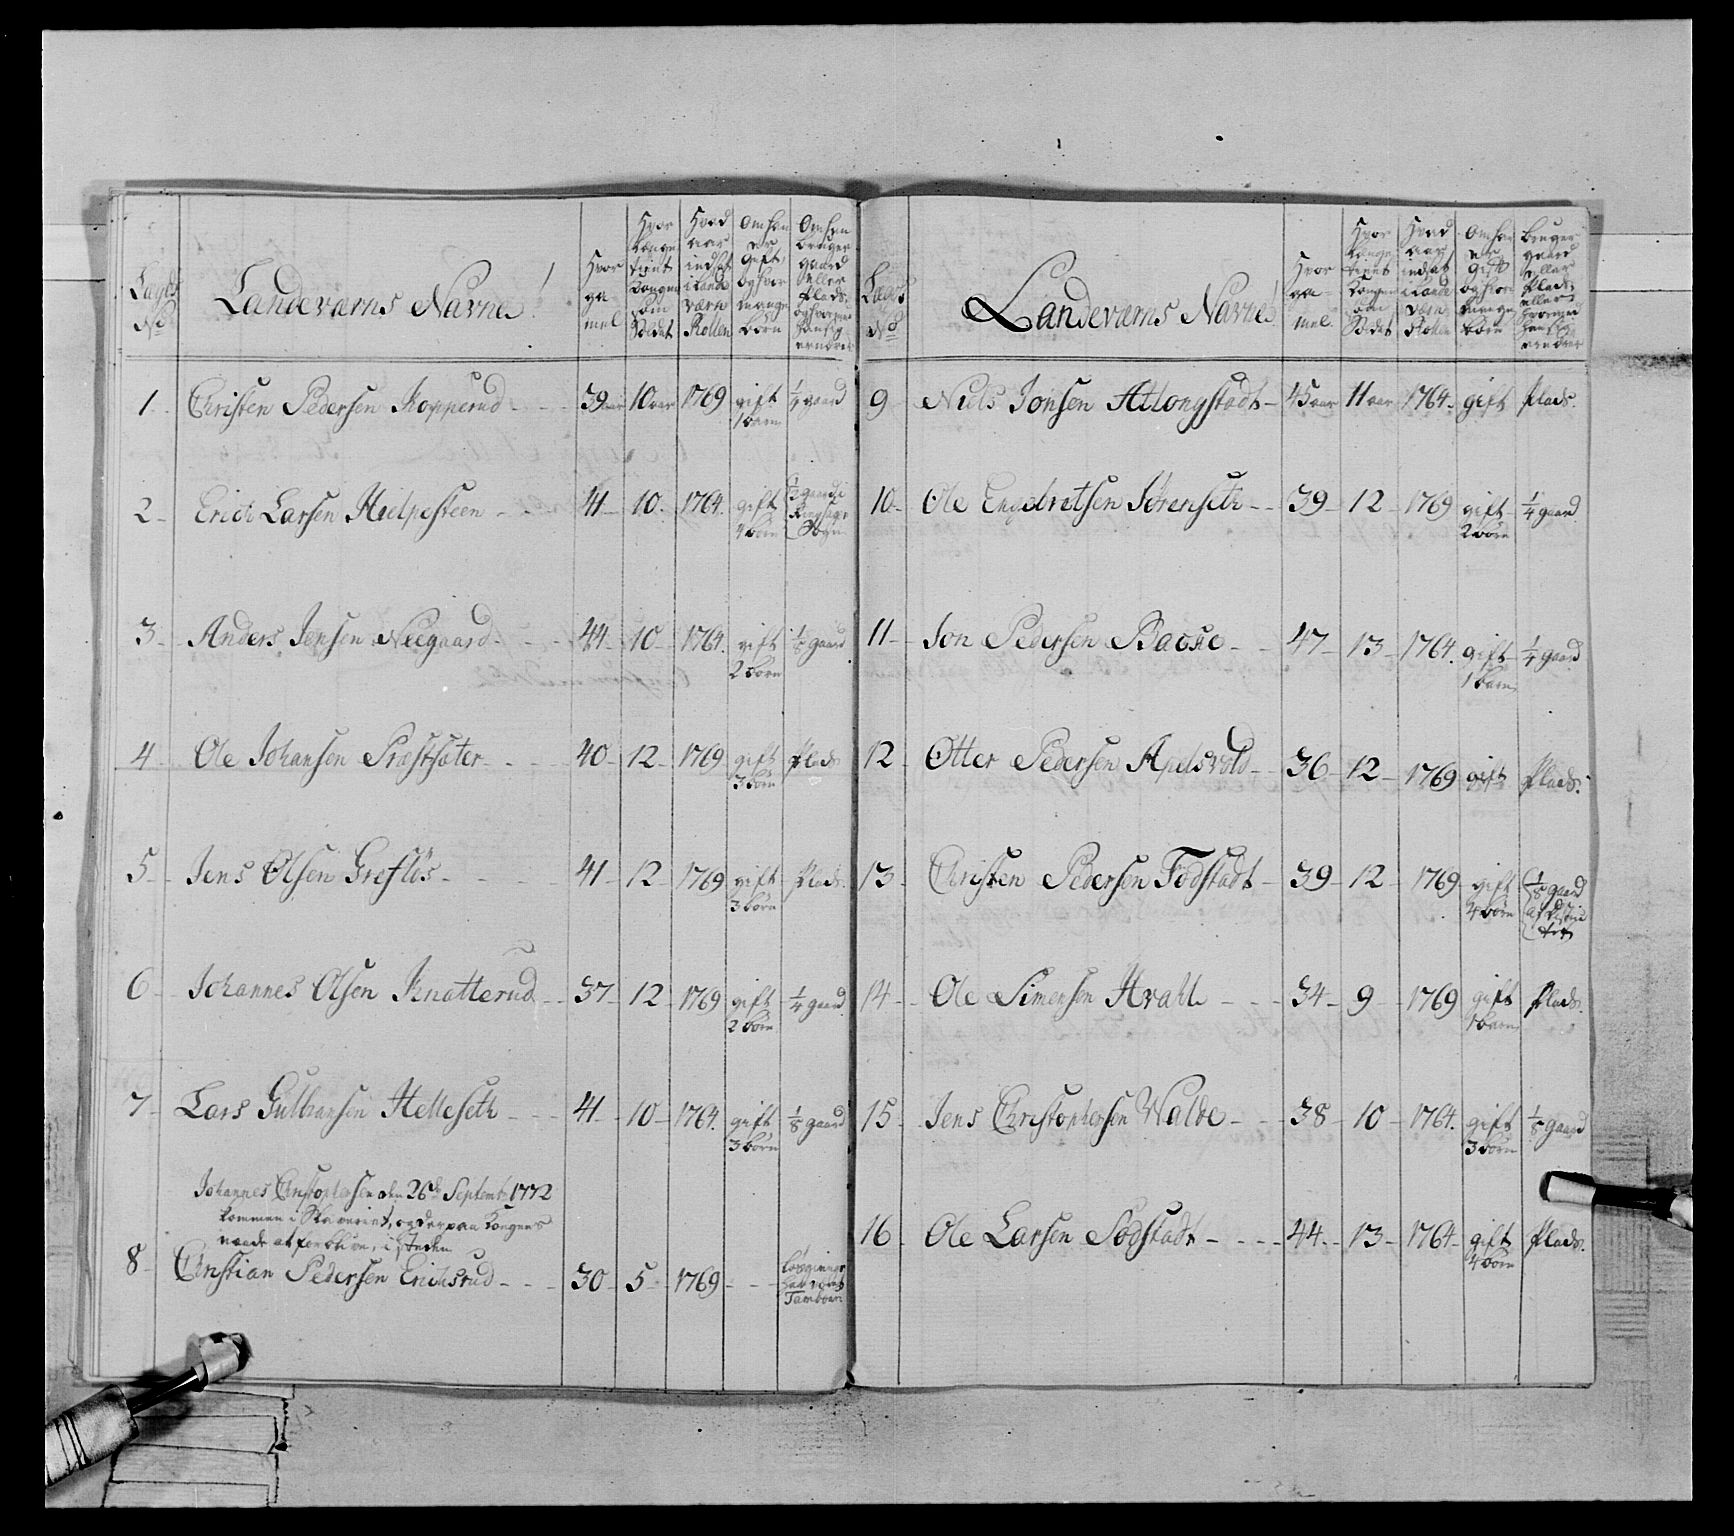 Lægds No
Landeværns Navne
Hvor gammel
Hvor længe tient Kongen som Soldat
Hvad aar indsat i Lande værn Rollen
Om han er gift, og hvor mange børn
Om han bruger gaard eller Plads,
1. Christen Pedersen Kopperud 39 aar 10 aar 1769 gift 1 barn 1/4 gaard
2 Erich Larsen Hielpesteen 41 10. 1764. gift 4 børn 1/2 gaard i Ringsager Sogn
3 Anders Jensen Neegaard 44 10 1764. gift 2 børn gaard
4 Ole Johansen Præstsæter 40 12 1769 gift 3 børn Plads
5 Jens Olsen Greflös 41 12 1769 gift 3 børn Plads.
6 Johannes Olsen Knatterud 37 12 1769 gift 2 børn 1/4 gaard
7 Lars Gulbransen Helleseth 41 10 1764. gift 3 børn 1/8 gaard
Johannes Christophersen den 26de Septembr 1772
kommen i Sta og derpaa Kongens
naade at forblive, i steden
8 Christian Pedersen Erichsrud 30 5 1769 har været Tambour
Lægds No
Landeværns Navne
Hvor gammel
Hvor længe tient Kongen som Soldat
Hvad aar indsat i Lande værn Rollen
Om han er gift og hvor mange børn
bruger gaard eller Plads, eller
9 Niels Jonsen Allongstadt 45 aar 11 aar 1764. gift Plads.
10 Ole Engebretsen Sørenseth 39 12 1769 gift 2 børn 1/4 gaard
11 Jon Pedersen Bache 47 13 1764. gift 1 barn 1/4 gaard
12 Otter Pedersen Apelsvold 36 12 1769 gift Plads.
13 Christen Pedersen Födstadt 39 12 1769 gift 4 børn 1/8 gaard
14 Ole Simensen Hvahl 34 9 1769 gift 1 barn Plads.
15 Jens Christophersen Walde 38 10 1764. gift 3 børn 1/8 gaard
16 Ole Larsen Södstadt 44. 13 1764 gift 4 børn Plads.